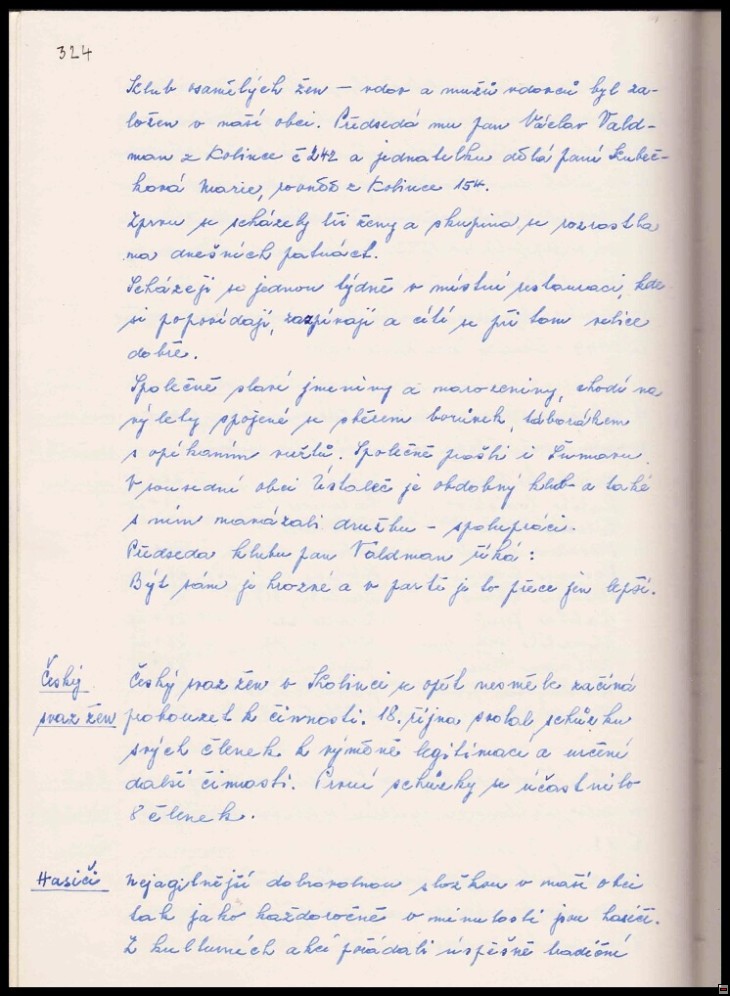 324
Klub osamělých žen – vdov a mužů vdovců byl za-
ložen v naší obci. Předsedá mu pan Václav Vald-
man z Kolince č 242 a jednatelku dělá paní Kubeč-
ková Marie, rovněž z Kolince 154.
Zprvu se scházely tři ženy a skupina se rozrostla
na dnešních patnáct.
Scházejí se jednou týdně v místní restauraci, kde
si popovídají, zazpívají a cítí se při tom velice
dobře.
Společně slaví jmeniny a narozeniny, chodí na
výlety spojené se sběrem borůvek, táborákem
s opékáním vuřtů. Společně prošli i Šumavu.
V sousední obci Ústaleč je obdobný klub a také
s ním navázali družbu – spolupráci.
Předseda klubu pan Valdman říká:
Být sám je hrozné a v partě je to přece jen lepší.
Český
svaz žen
Český svaz žen v Kolinci se opět nesměle začíná
pokouzet k činnosti. 18. října svolal schůzku
svých členek k výměně legitimací a určení
další činnosti. První schůzky se účastnilo
8 členek.
Hasiči
Nejagilnější dobrovolnou složkou v naší obci
tak jako každoročně v minulosti jsou hasiči.
Z kulturních akcí pořádali úspěšně tradiční